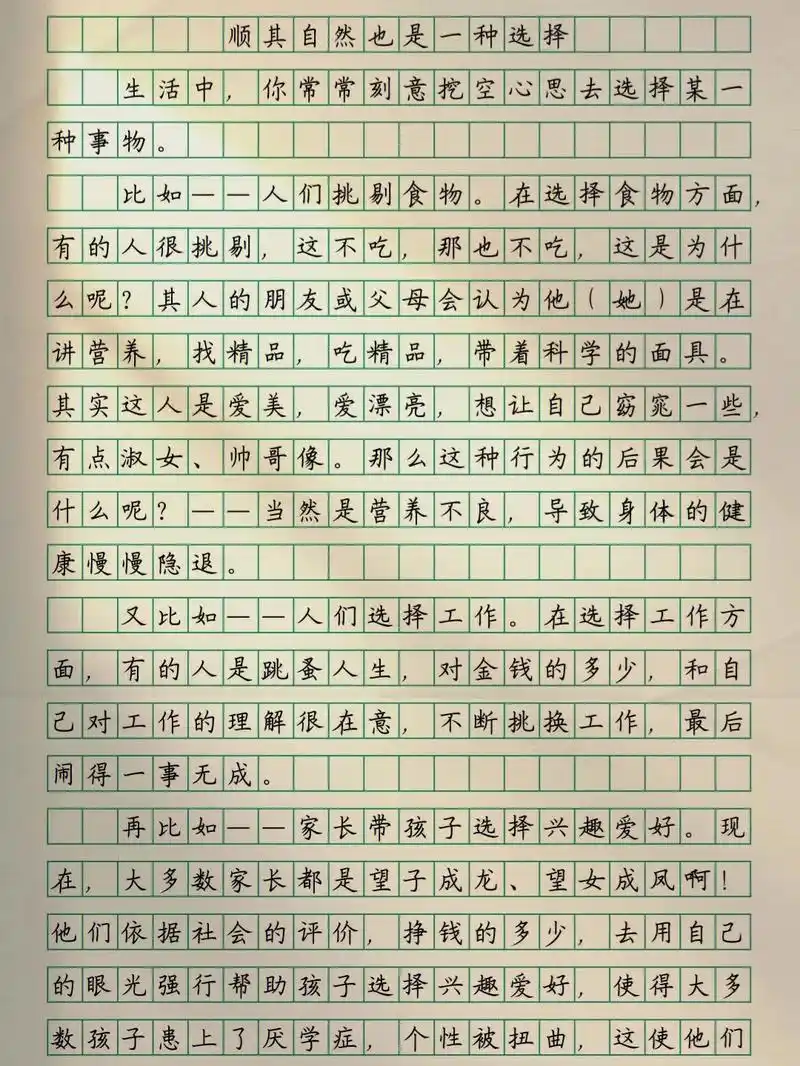 顺其自然也是一种选择
生活中，你常常刻意挖空心思去选择某一
种事物。
比如——人们挑剔食物。在选择食物方面，
有的人很挑剔，这不吃，那也不吃，这是为什
么呢？其人的朋友或父母会认为他（她）是在
讲营养，找精品，吃精品，带着科学的面具。
其实这人是爱美，爱漂亮，想让自己窈窕一些，
有点淑女、帅哥像。那么这种行为的后果会是
什么呢？——当然是营养不良，导致身体的健
康慢慢隐退。
又比如——人们选择工作。在选择工作方
面，有的人是跳蚤人生，对金钱的多少，和自
己对工作的理解很在意，不断挑换工作，最后
闹得一事无成。
再比如——家长带孩子选择兴趣爱好。现
在，大多数家长都是望子成龙、望女成凤啊！
他们依据社会的评价，挣钱的多少，去用自己
的眼光强行帮助孩子选择兴趣爱好，使得大多
数孩子患上了厌学症，个性被扭曲，这使他们